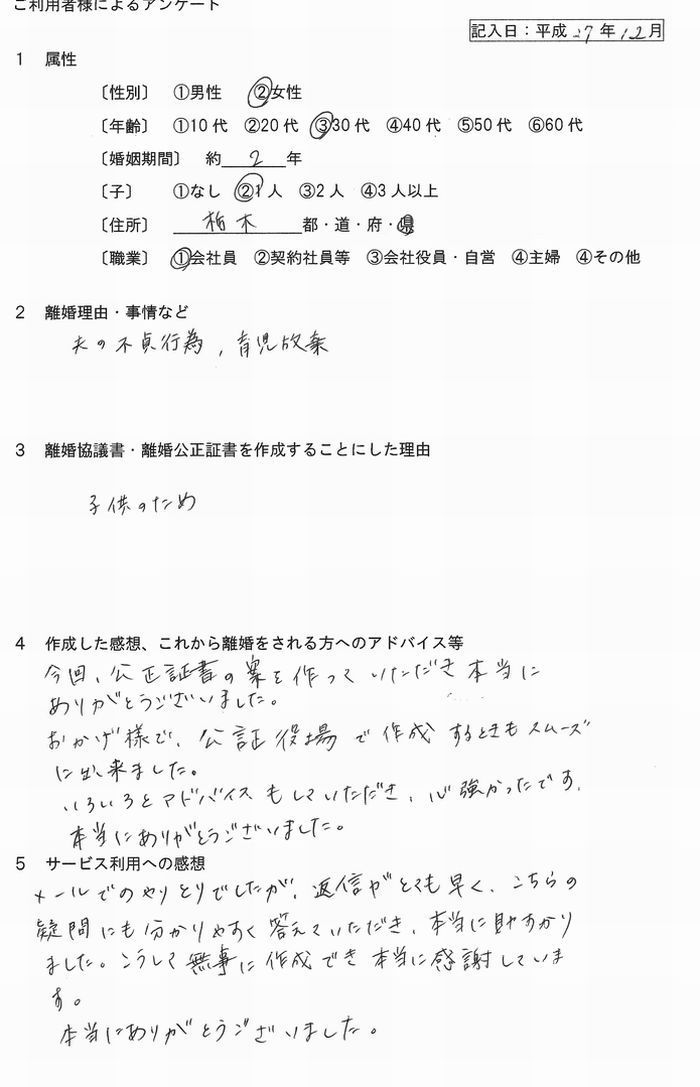 ご利用者様によるアンケート
記入日：平成 27 年 12月
1 属性
〔性別〕 ①男性 ②女性
〔年齢〕 ①10代 ②20代 ③30代 ④40代 ⑤50代 ⑥60代
〔婚姻期間〕 約 2 年
〔子〕 ①なし ②1人 ③2人 ④3人以上
〔住所〕 栃木 都・道・府・県
〔職業〕 ①会社員 ②契約社員等 ③会社役員・自営 ④主婦 ④その他
2 離婚理由・事情など
夫の不貞行為，育児放棄
3 離婚協議書・離婚公正証書を作成することにした理由
子供のため
4 作成した感想、これから離婚をされる方へのアドバイス等
今回、公正証書の案を作っていただき本当に
ありがとうございました。
おかげ様で、公証役場で作成するときもスムーズ
に出来ました。
いろいろとアドバイスもしていただき、心強かったです。
本当にありがとうございました。
5 サービス利用への感想
メールでのやりとりでしたが、返信がとても早く、こちらの
疑問にも分かりやすく答えていただき、本当に助かり
ました。こうして無事に作成でき本当に感謝していま
す。
本当にありがとうございました。